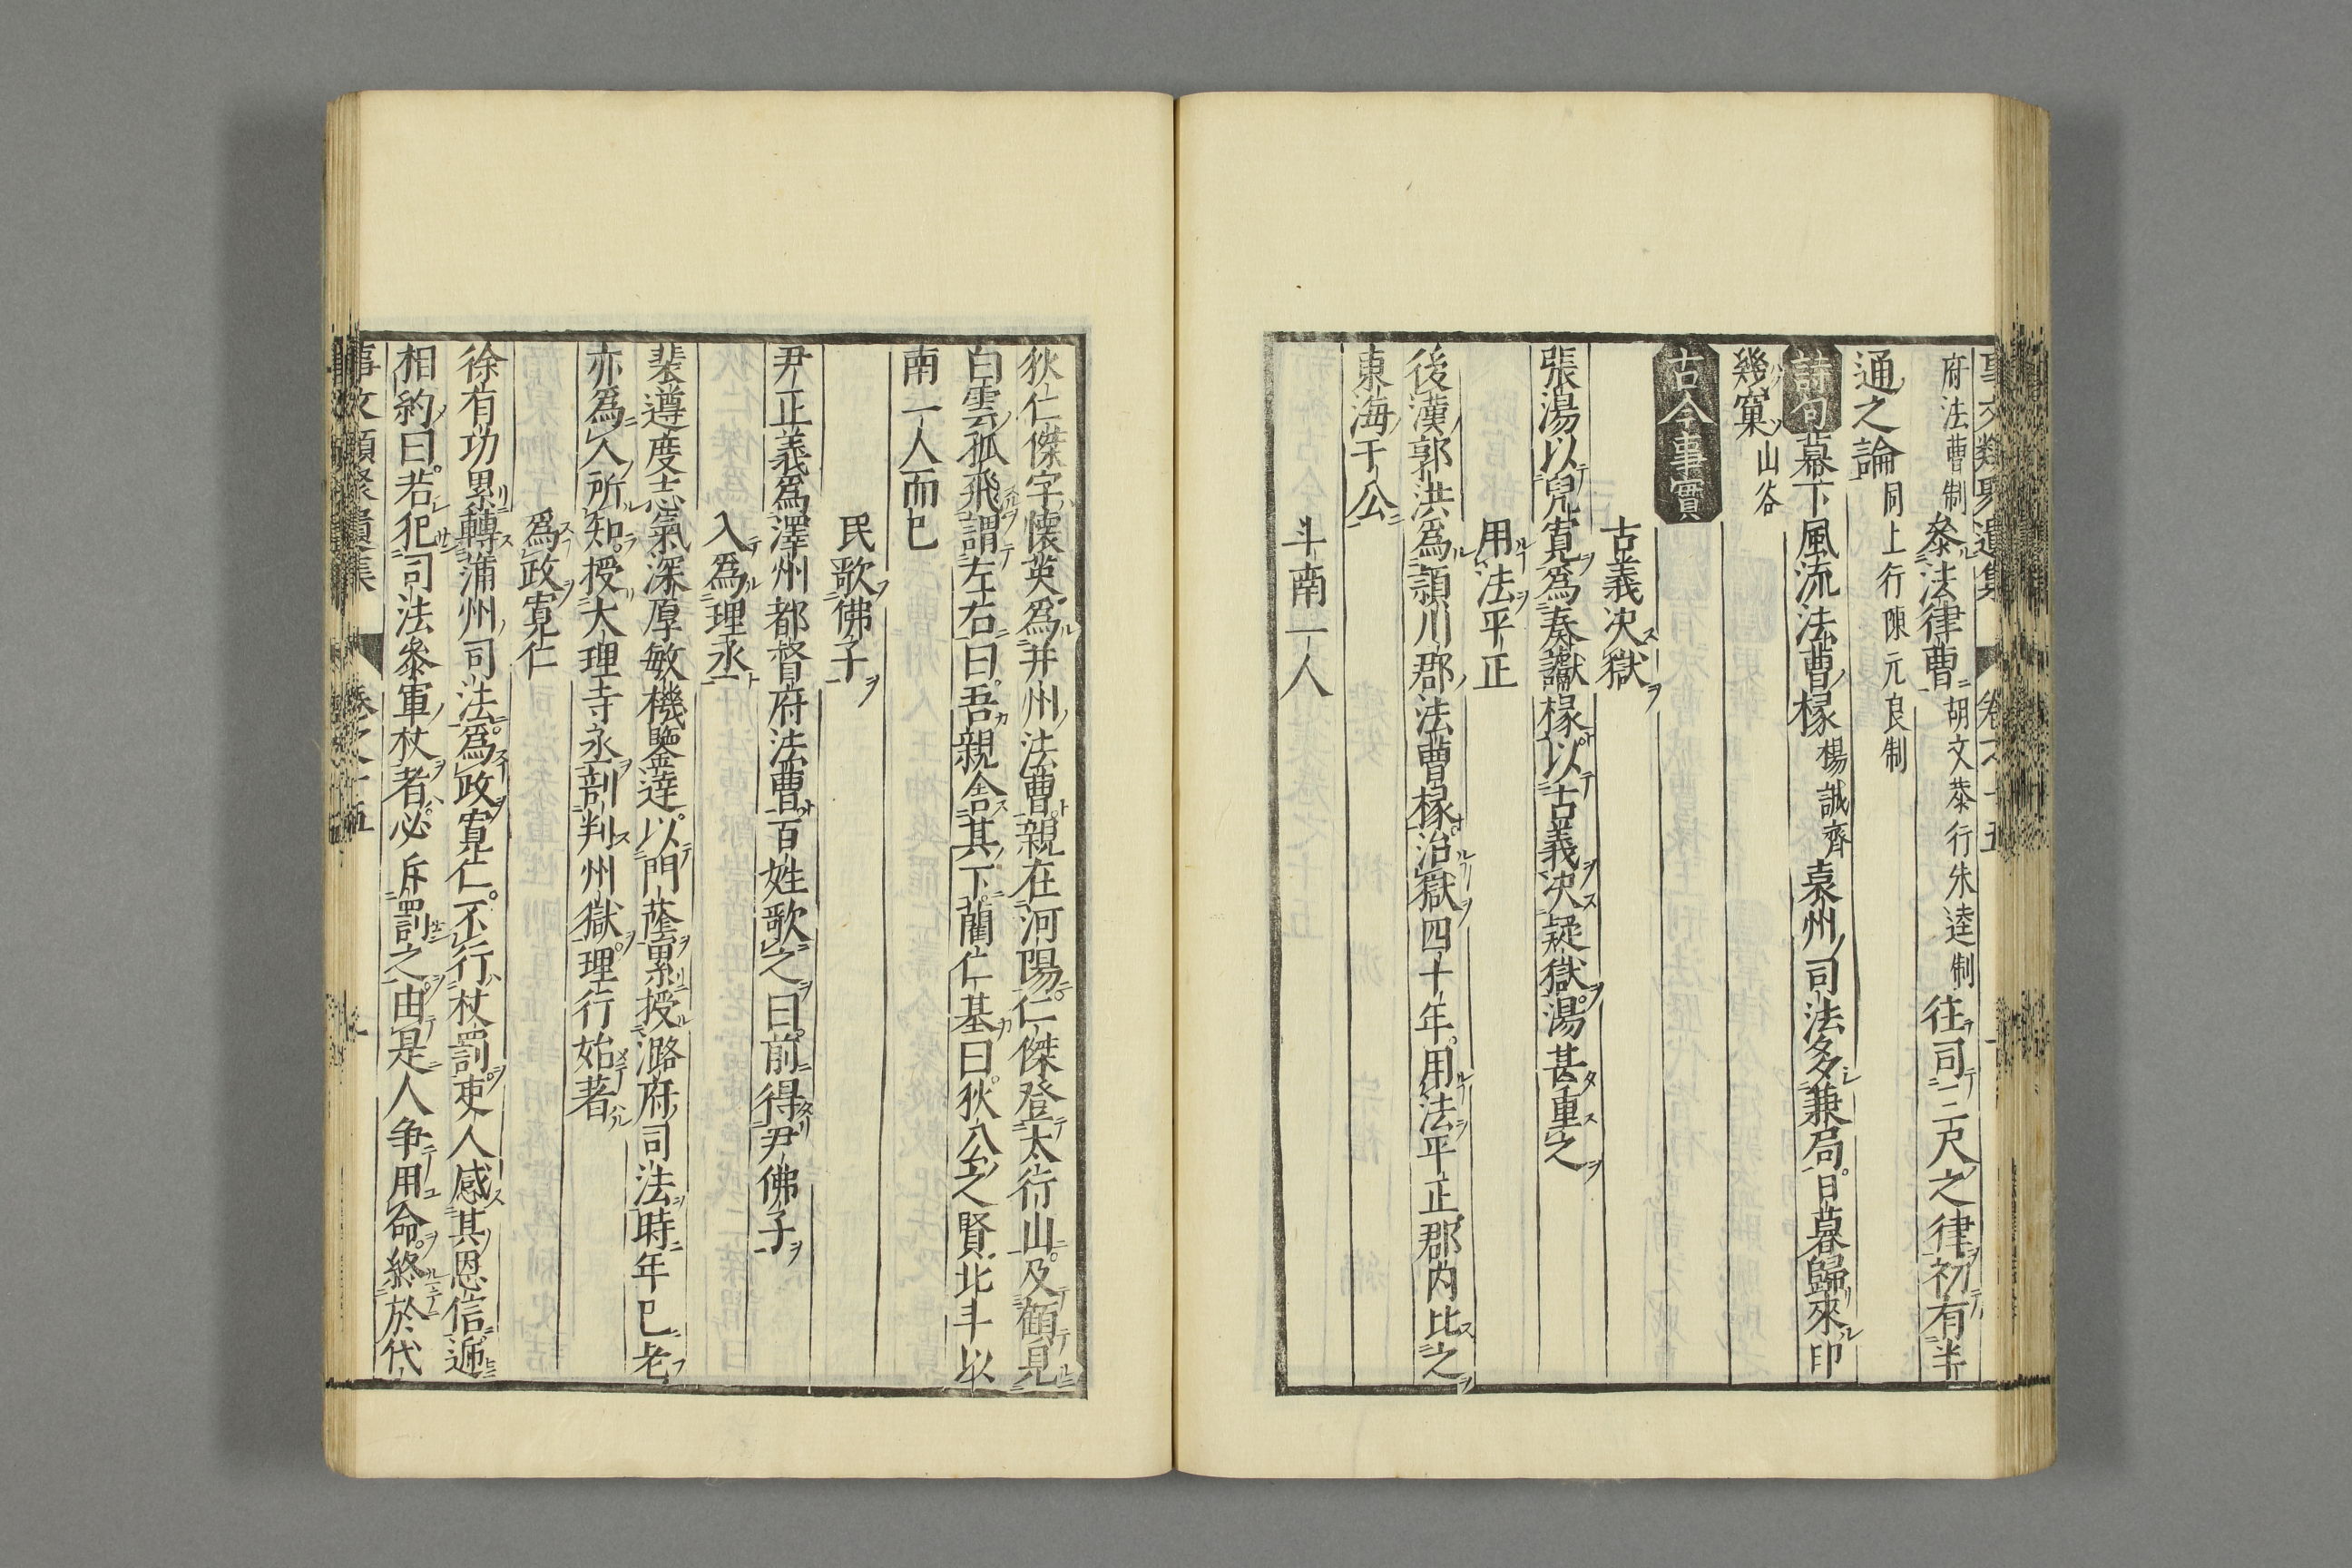 事文類聚遺集 卷之十五
府法曹制 叅法律曹 胡文恭行朱逵制 往司三尺之律初有半
通之論 同上行陳元良制
詩句 幕下風流法曹椽 楊誠齊 袁州司法多兼局日暮歸來印
幾窠 山谷
古今事實
古義决獄
張湯以兒寛為奏讞椽以古義决疑獄湯甚重之
用法平正
後漢郭洪為潁川郡法曹椽治獄四十年用法平正郡内比之
東海于公
斗南一人
狄仁傑字懷英為并州法曹親在河陽仁傑登太行山及顧見
白雲孤飛謂左右曰吾親舎其下藺仁基曰狄公之賢北斗以
南一人而已
民歌佛子
尹正義為澤州都督府法曹百姓歌之曰前得尹佛子
入為理丞
裴遵度志氣深厚敏機鑒達以門蔭累授潞府司法時年已老
亦為人所知授大理寺丞剖判州獄理行始著
為政寛仁
徐有功累轉蒲州司法為政寛仁不行杖罰吏人感其恩信遞
相約曰若犯司法叅軍杖者必斥罰之由是人争用命終於代
事文類聚遺集 卷之十五